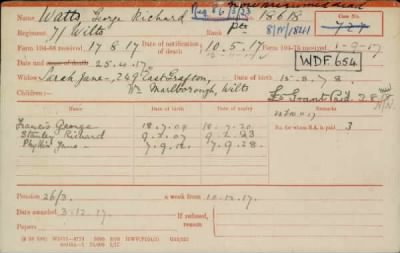 now presumed dead
Name Watts, George Richard Reg No 18618
Case No.
Regiment 7/ Wilts Rank Pte 8/N/1841 727
Form 104-88 received 17 8 17 Date of notification of death 10.5.17 Form 104-76 received 1-9-17
Date and 25.4.17. WDF. 654
Widow Sarah Jane, 249 East Grafton, 15.8.78
Nr Marlborough, Wilts
Children:— £5 Grant Paid
No. for whom S.A. is paid 3
Date of birth Date of expiry
Francis George 18.7.04 18.7.20
Stanley Richard 9.2.07 9.2.23
Phyllis Jane 7.9.12 7.9.28
Pension 26/3 a week from 10.12.17.
Date awarded 3.12.17. If refused, reason